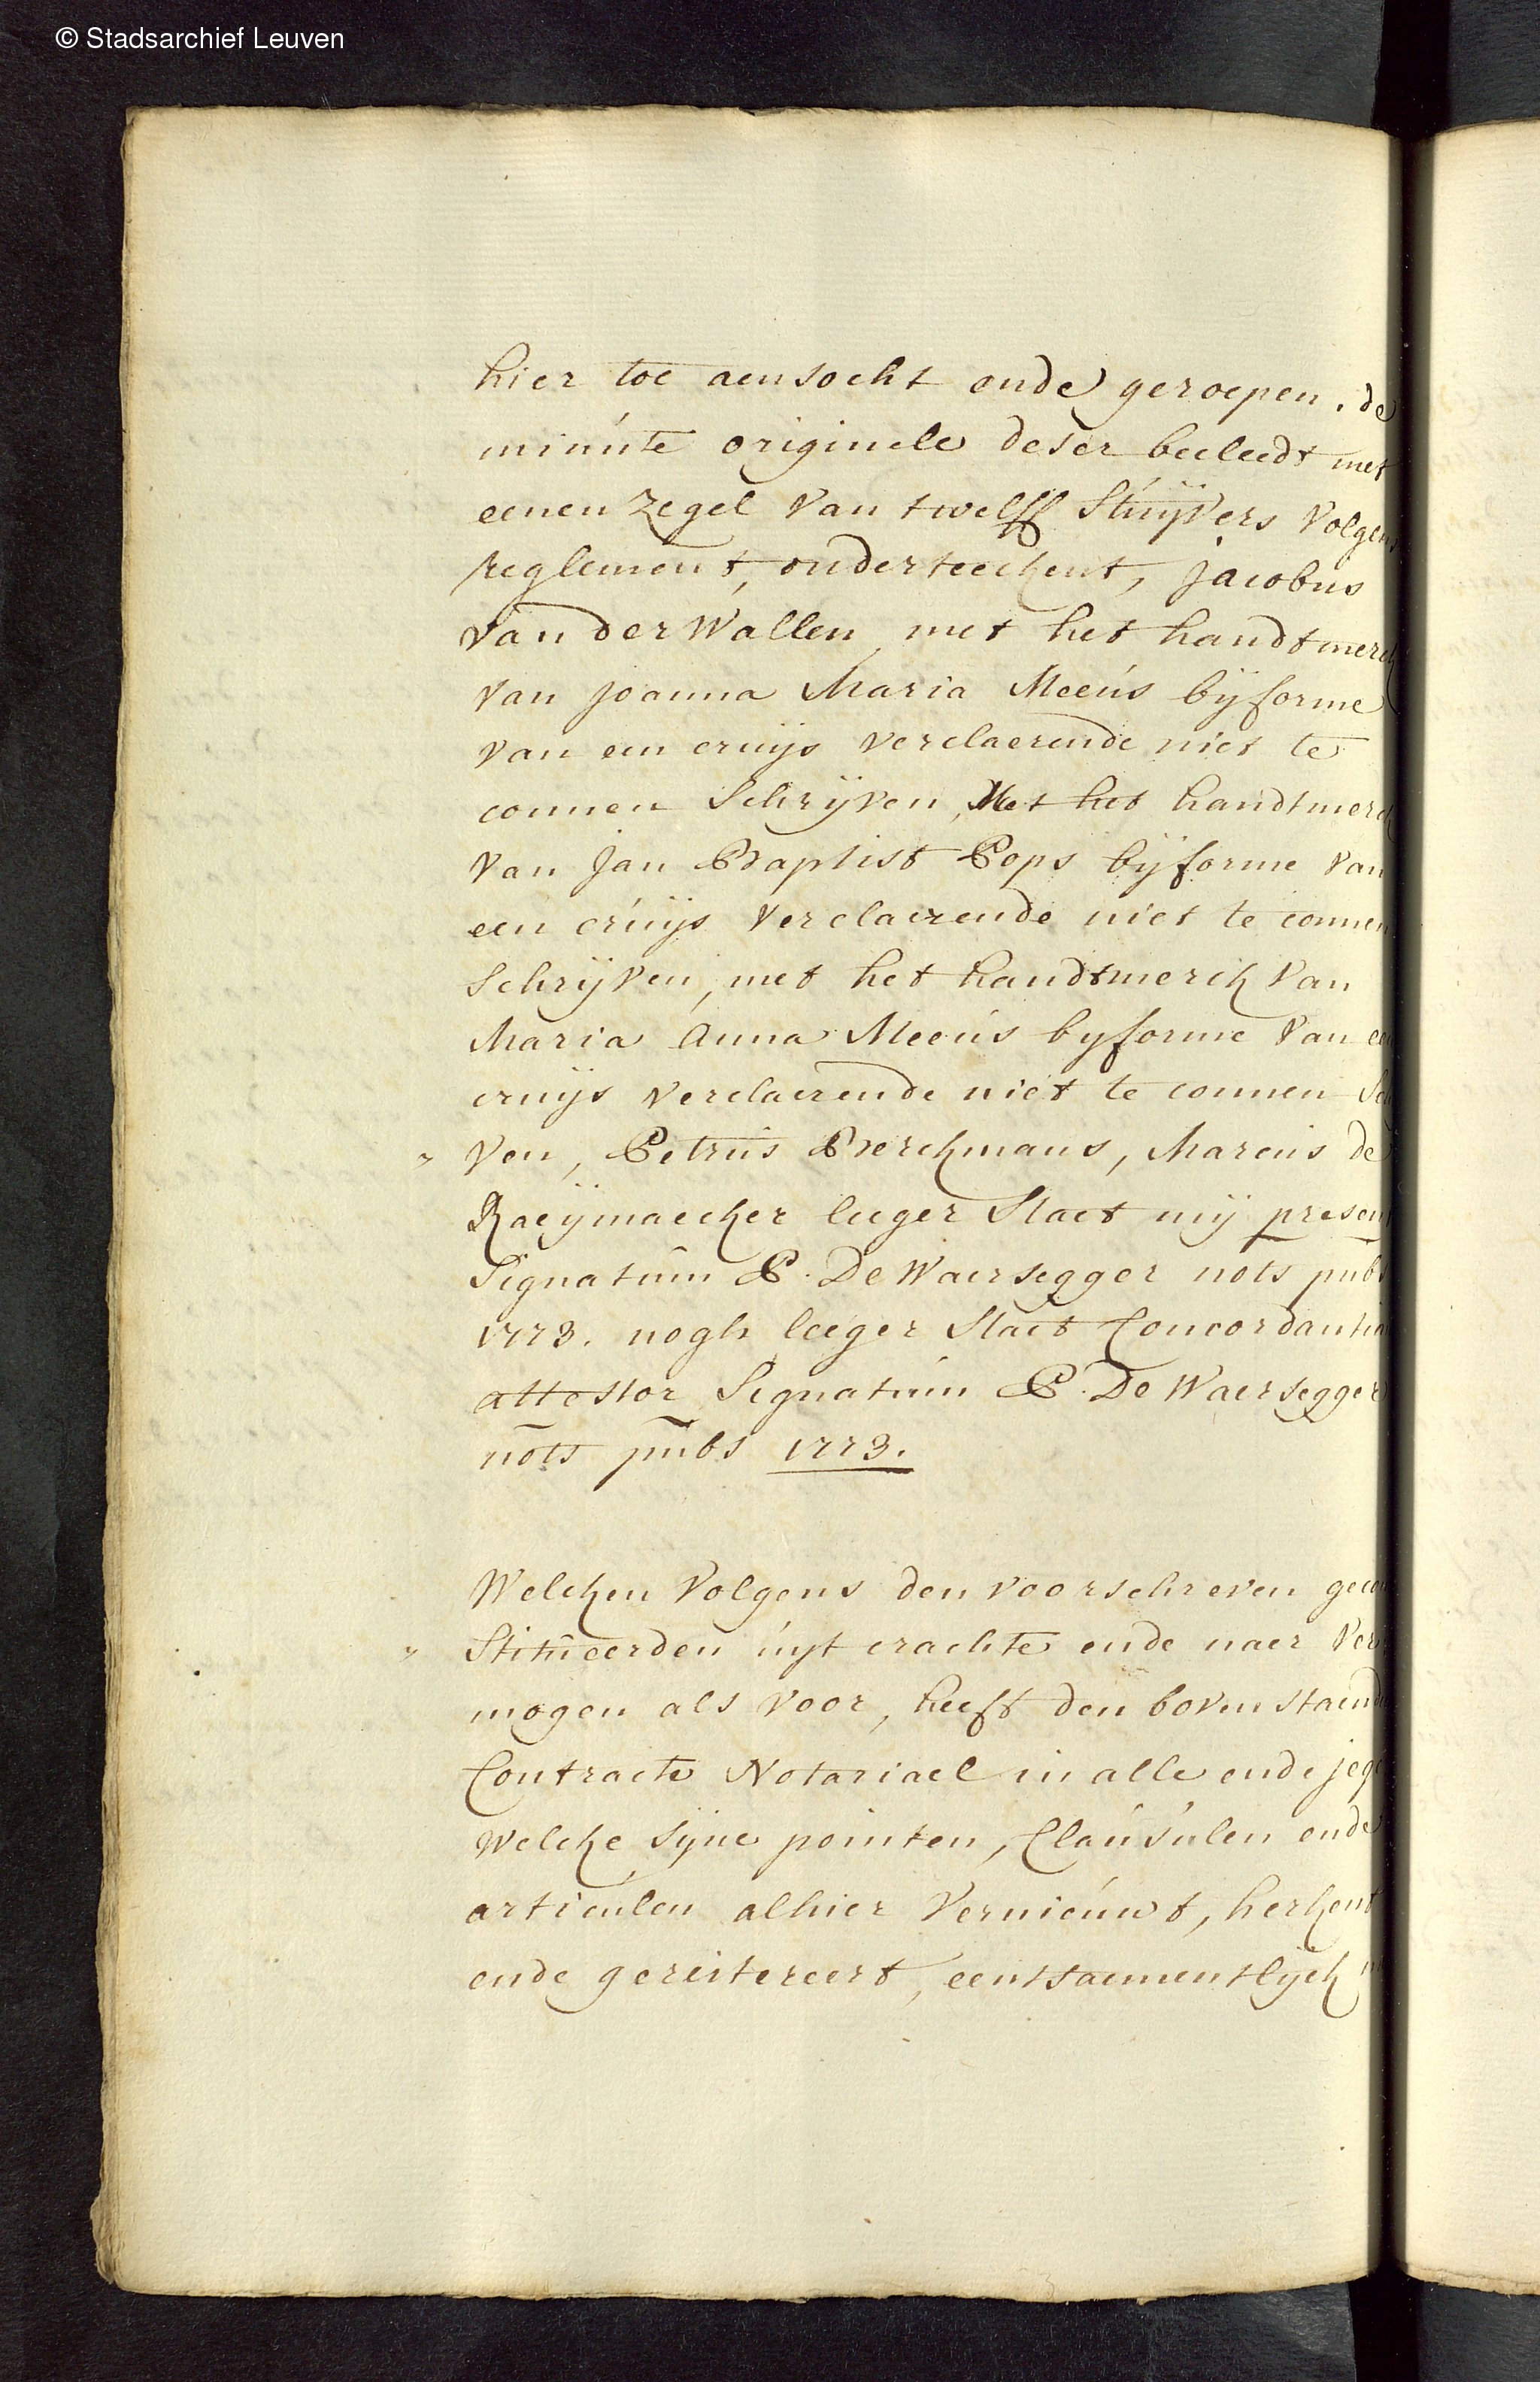 © Stadsarchief Leuven
hier toe aensocht ende geroepen. de
minute originele deser beeleedt met
eenen Zegel van twelff Stuÿvers volgens
reglement, onderteeckent, Jacobus
van der Wallen, met het handtmerck
van Joanna Maria Meeus bÿ forme
van een cruijs verclaerende niet te
connen Schrijven, Met het handtmerck
van Jan Baptist Pops bÿ forme van
een cruijs verclaerende niet te connen
Schrijven, met het handtmerck van
Maria Anna Meeus by forme van een
cruijs verclaerende niet te connen
ven, Petrus Berckmans, Marcus de
Raeÿmaecker leeger Staet mÿ present
Signatum P. De Waersegger nots pubs
1773. nogh leeger Staet Concordantiam
attestor Signatum P. De Waersegger
nots pubs 1773.
Welcken volgens den voorschreven
Stitueerden uijt crachte ende naer Ver
mogen als voor, heeft den bovenstaende
Contracte Notariael in alle ende
Welcke sijne pointen, Clausulen ende
articulen alhier Vernieuwt, herkent
ende gereitereert, eentsaementlijck